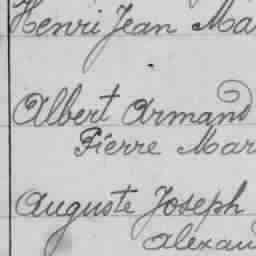 Henri Jean Ma
Albert Armand
Pierre Mar
Auguste Joseph
Alexan